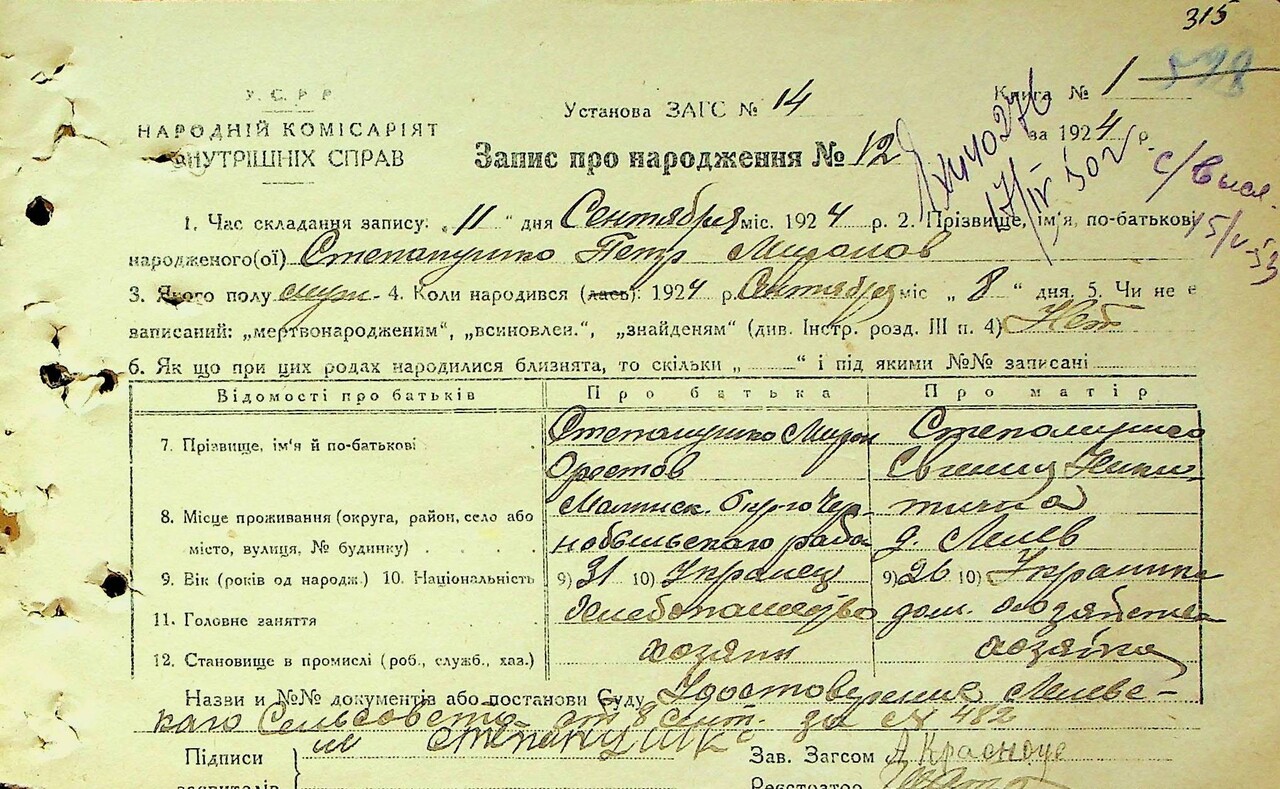 315
У. С. Р. Р.
НАРОДНІЙ КОМІСАРІЯТ
ВНУТРІШНІХ СПРАВ
Установа ЗАГС № 14
Книга № 1
за 1924 р.
Запис про народження № 12
с/в
15/V-53
1. Час складання запису: „11“ дня Сентября міс. 1924 р. 2. Прізвище, ім'я, по-батькові
народженого(ої) Степанушко Петр Миронов
3. Якого полу муж. 4. Коли народився (лась): 1924 р. Сентября міс „8“ дня. 5. Чи не є
записаний: „мертвонародженим“, „всиновлен.“, „знайденям“ (див. Інстр. розд. III п. 4) Нет
6. Як що при цих родах народилися близнята, то скільки „ “ і під якими №№ записані
Відомості про батьків Про батька Про матір
7. Прізвище, ім'я й по-батькові
Степанушко Мирон
Орестов
Степанушко
Евгения Ники-
тична
8. Місце проживання (округа, район, село або
місто, вулиця, № будинку)
Чер-
нобыльскаго
9. Вік (років од народж.) 10. Національність 9) 31 10) Украинец 9) 26 10) Украинка
11. Головне заняття Хлебопашество дом. хозяйство
12. Становище в промислі (роб., служб., хаз.) хозяин хозяйка
Назви и №№ документів або постанови Суду Удостоверение
каго Сельсовета от 8 сент. за № 482
Підписи м степанушк Зав. Загсом
заявителів Реєстратор